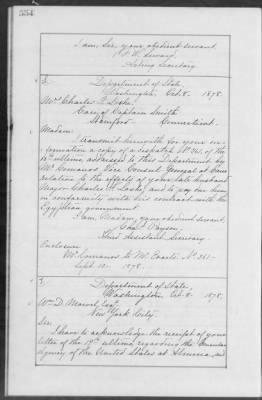 554.
I am, Sir, your obedient servant,
F. W. Seward,
Acting Secretary
Department of State,
Washington, Oct. 8. 1878.
Mrs Charles I. Loshe,
Care of Captain Smith
Stamford Connecticut.
Madam:
I transmit herewith for your in-
formation a copy of a despatch No 361. of the
10th ultimo addressed to this Department by
Mr Comanos Vice Consul General at Cairo
relation to the effects of your late husband
Major Charles I. and to pay due them
in conformity with his contract with the
Egyptian government.
I am, Madam, your obedient servant,
Chas. Payson,
Third Assistant Secretary
Enclosure
Mr Comanos to Mr Evarts. No 361-
Sept. 10. 1878.
Department of State,
Washington, Oct. 8. 1878.
Wm D. Marvel, Esq.
New York City.
Sir:
I have to acknowledge the receipt of your
letter of the 19th ultimo regarding the Consular
Agency of the United States at and